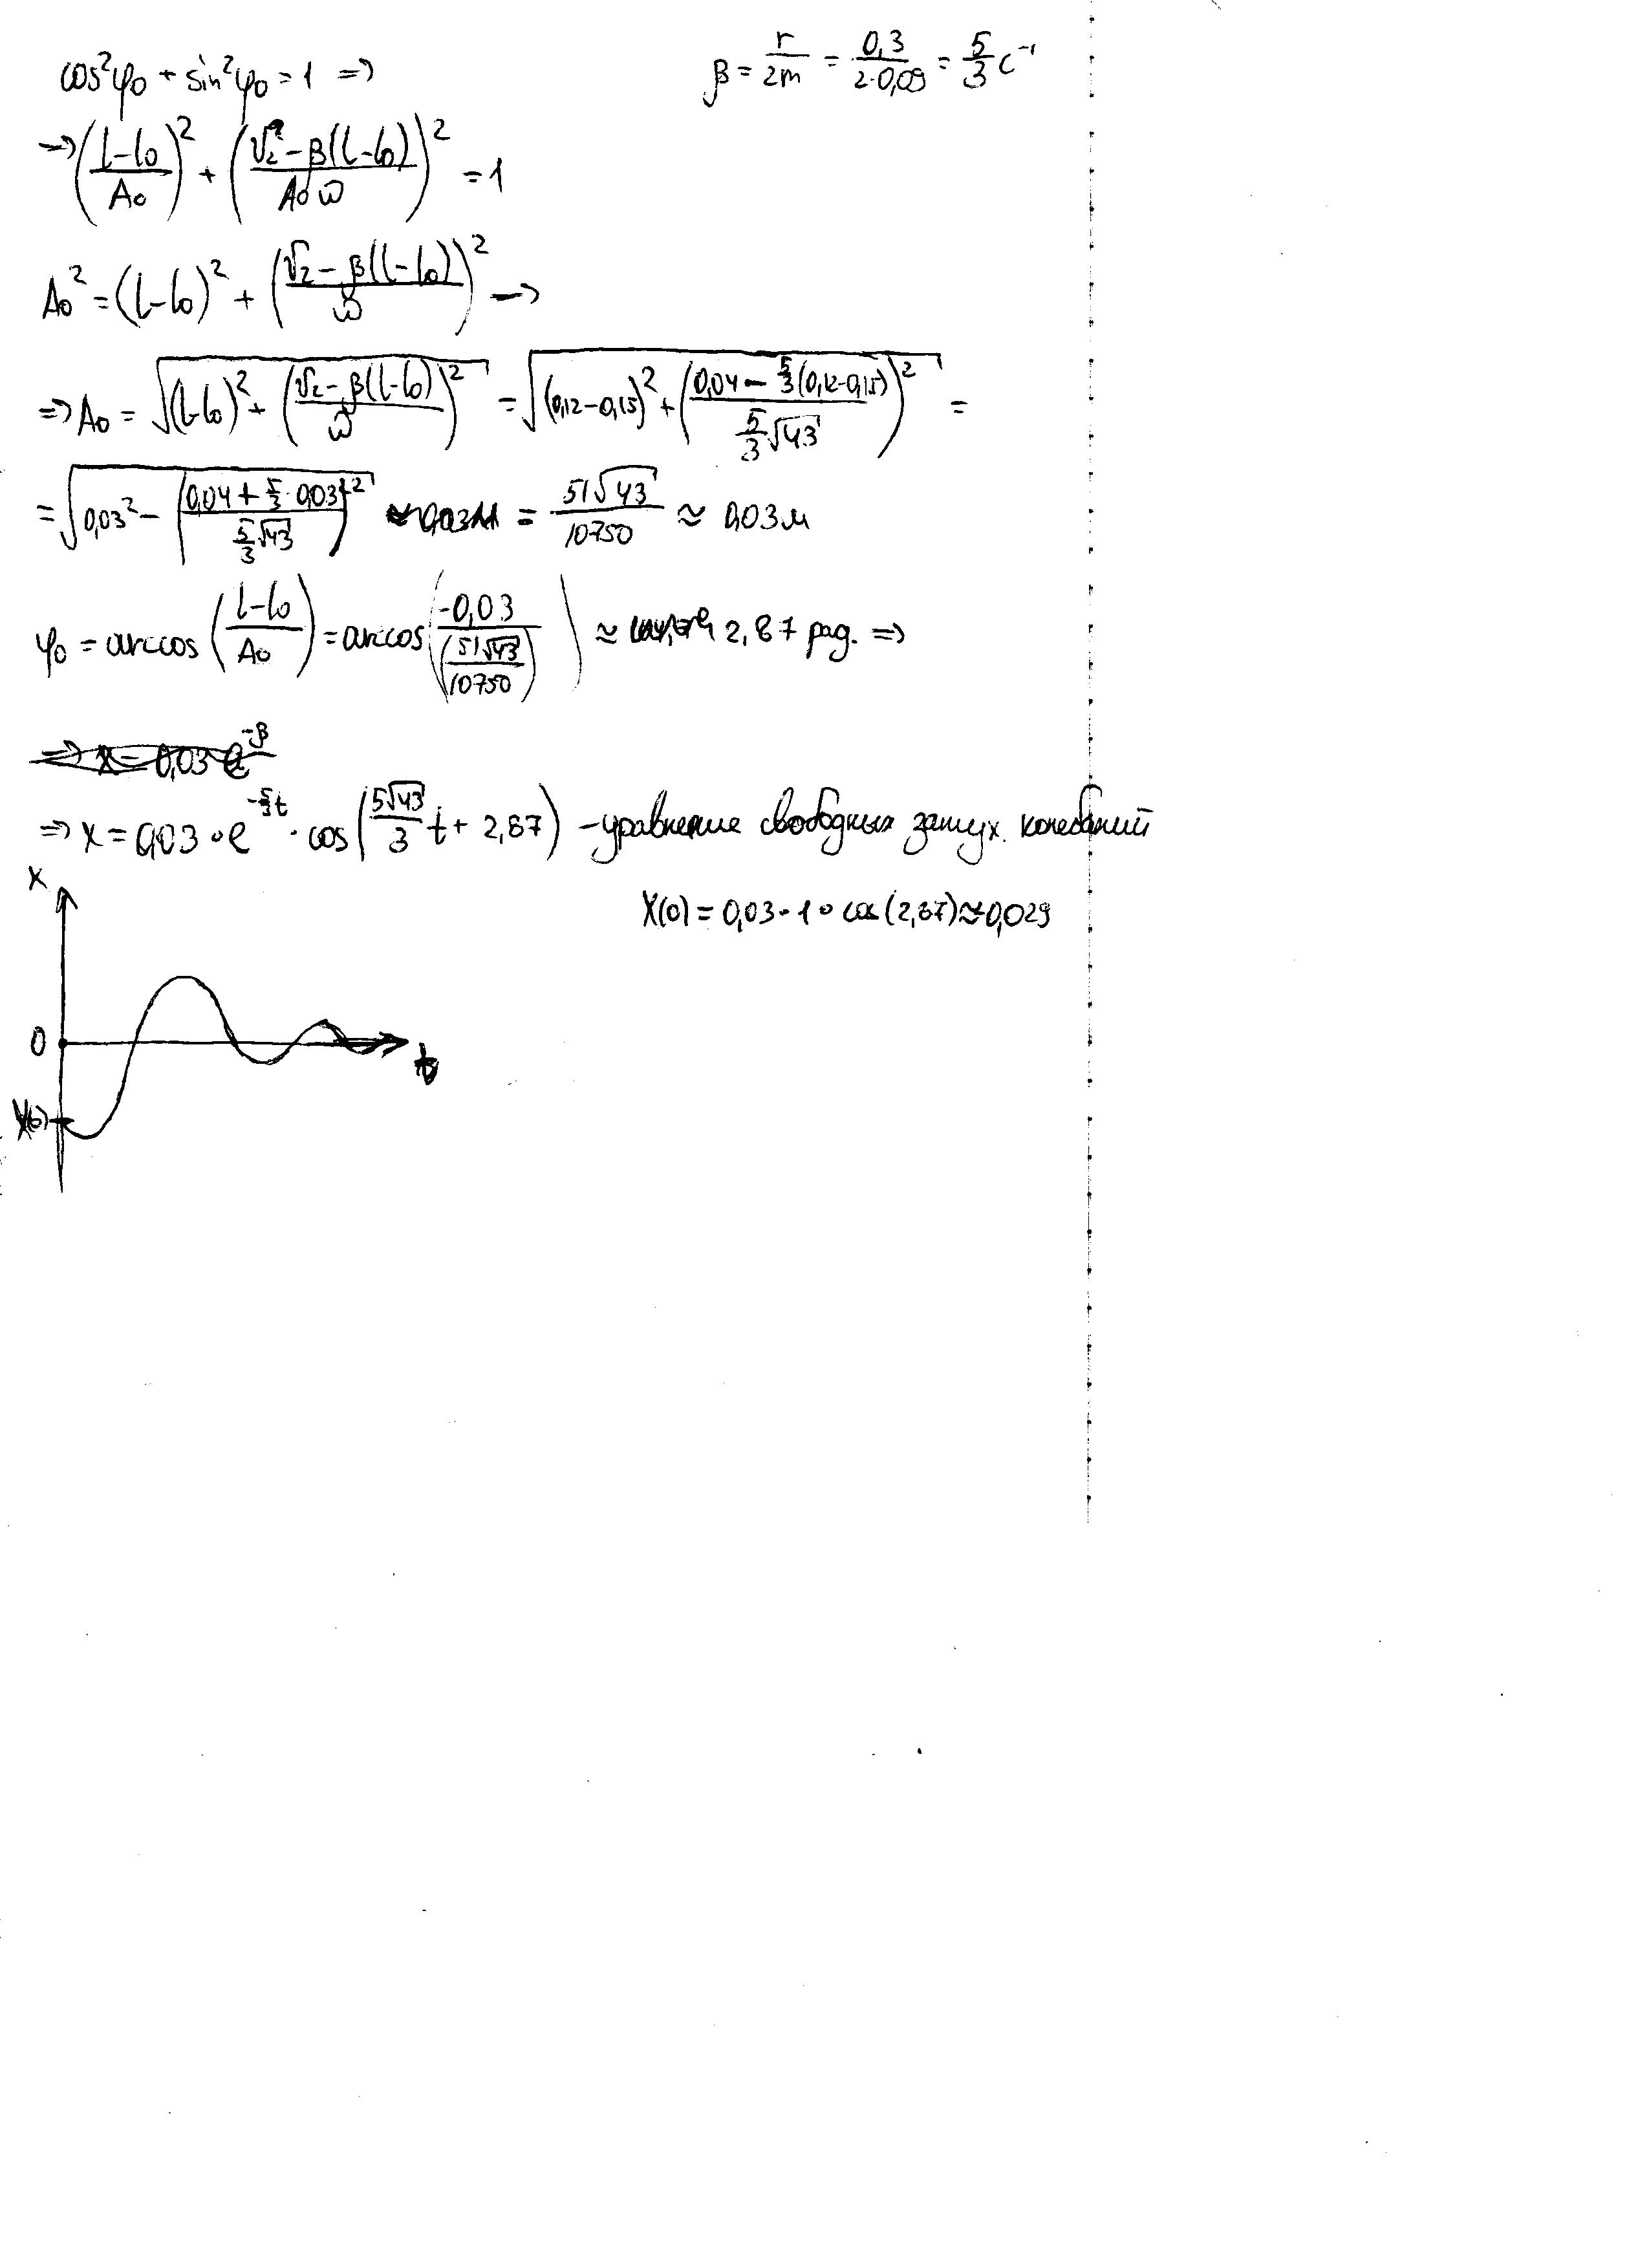 cos²φ₀ + sin²φ₀ = 1 ⇒
β = r/2m = 0,3/(2·0,09) = 5/3 с⁻¹
→ ((l-l₀)/A₀)² + ((v₂ - β(l-l₀))/(A₀ω))² = 1
A₀² = (l-l₀)² + ((v₂ - β(l-l₀))/ω)² →
⇒ A₀ = √((l-l₀)² + ((v₂ - β(l-l₀))/ω)²) = √((0,12-0,15)² + ((0,04 - 5/3(0,12-0,15))/(5/3 √43))²) =
= √(0,03² - ((0,04 + 5/3·0,03)/(5/3 √43))²) ≈ 0,03м = 51√43/10750 ≈ 0,03м
φ₀ = arccos((l-l₀)/A₀) = arccos(-0,03/(51√43/10750)) ≈ 2,87 рад. ⇒
⇒ x = 0,03 e^(-β)
⇒ x = 0,03 · e^(-5/3 t) · cos(5√43/3 t + 2,87) – уравнение свободных затух. колебаний
x
X(0) = 0,03 · 1 · cos(2,87) ≈ 0,029
0
t
X(0)